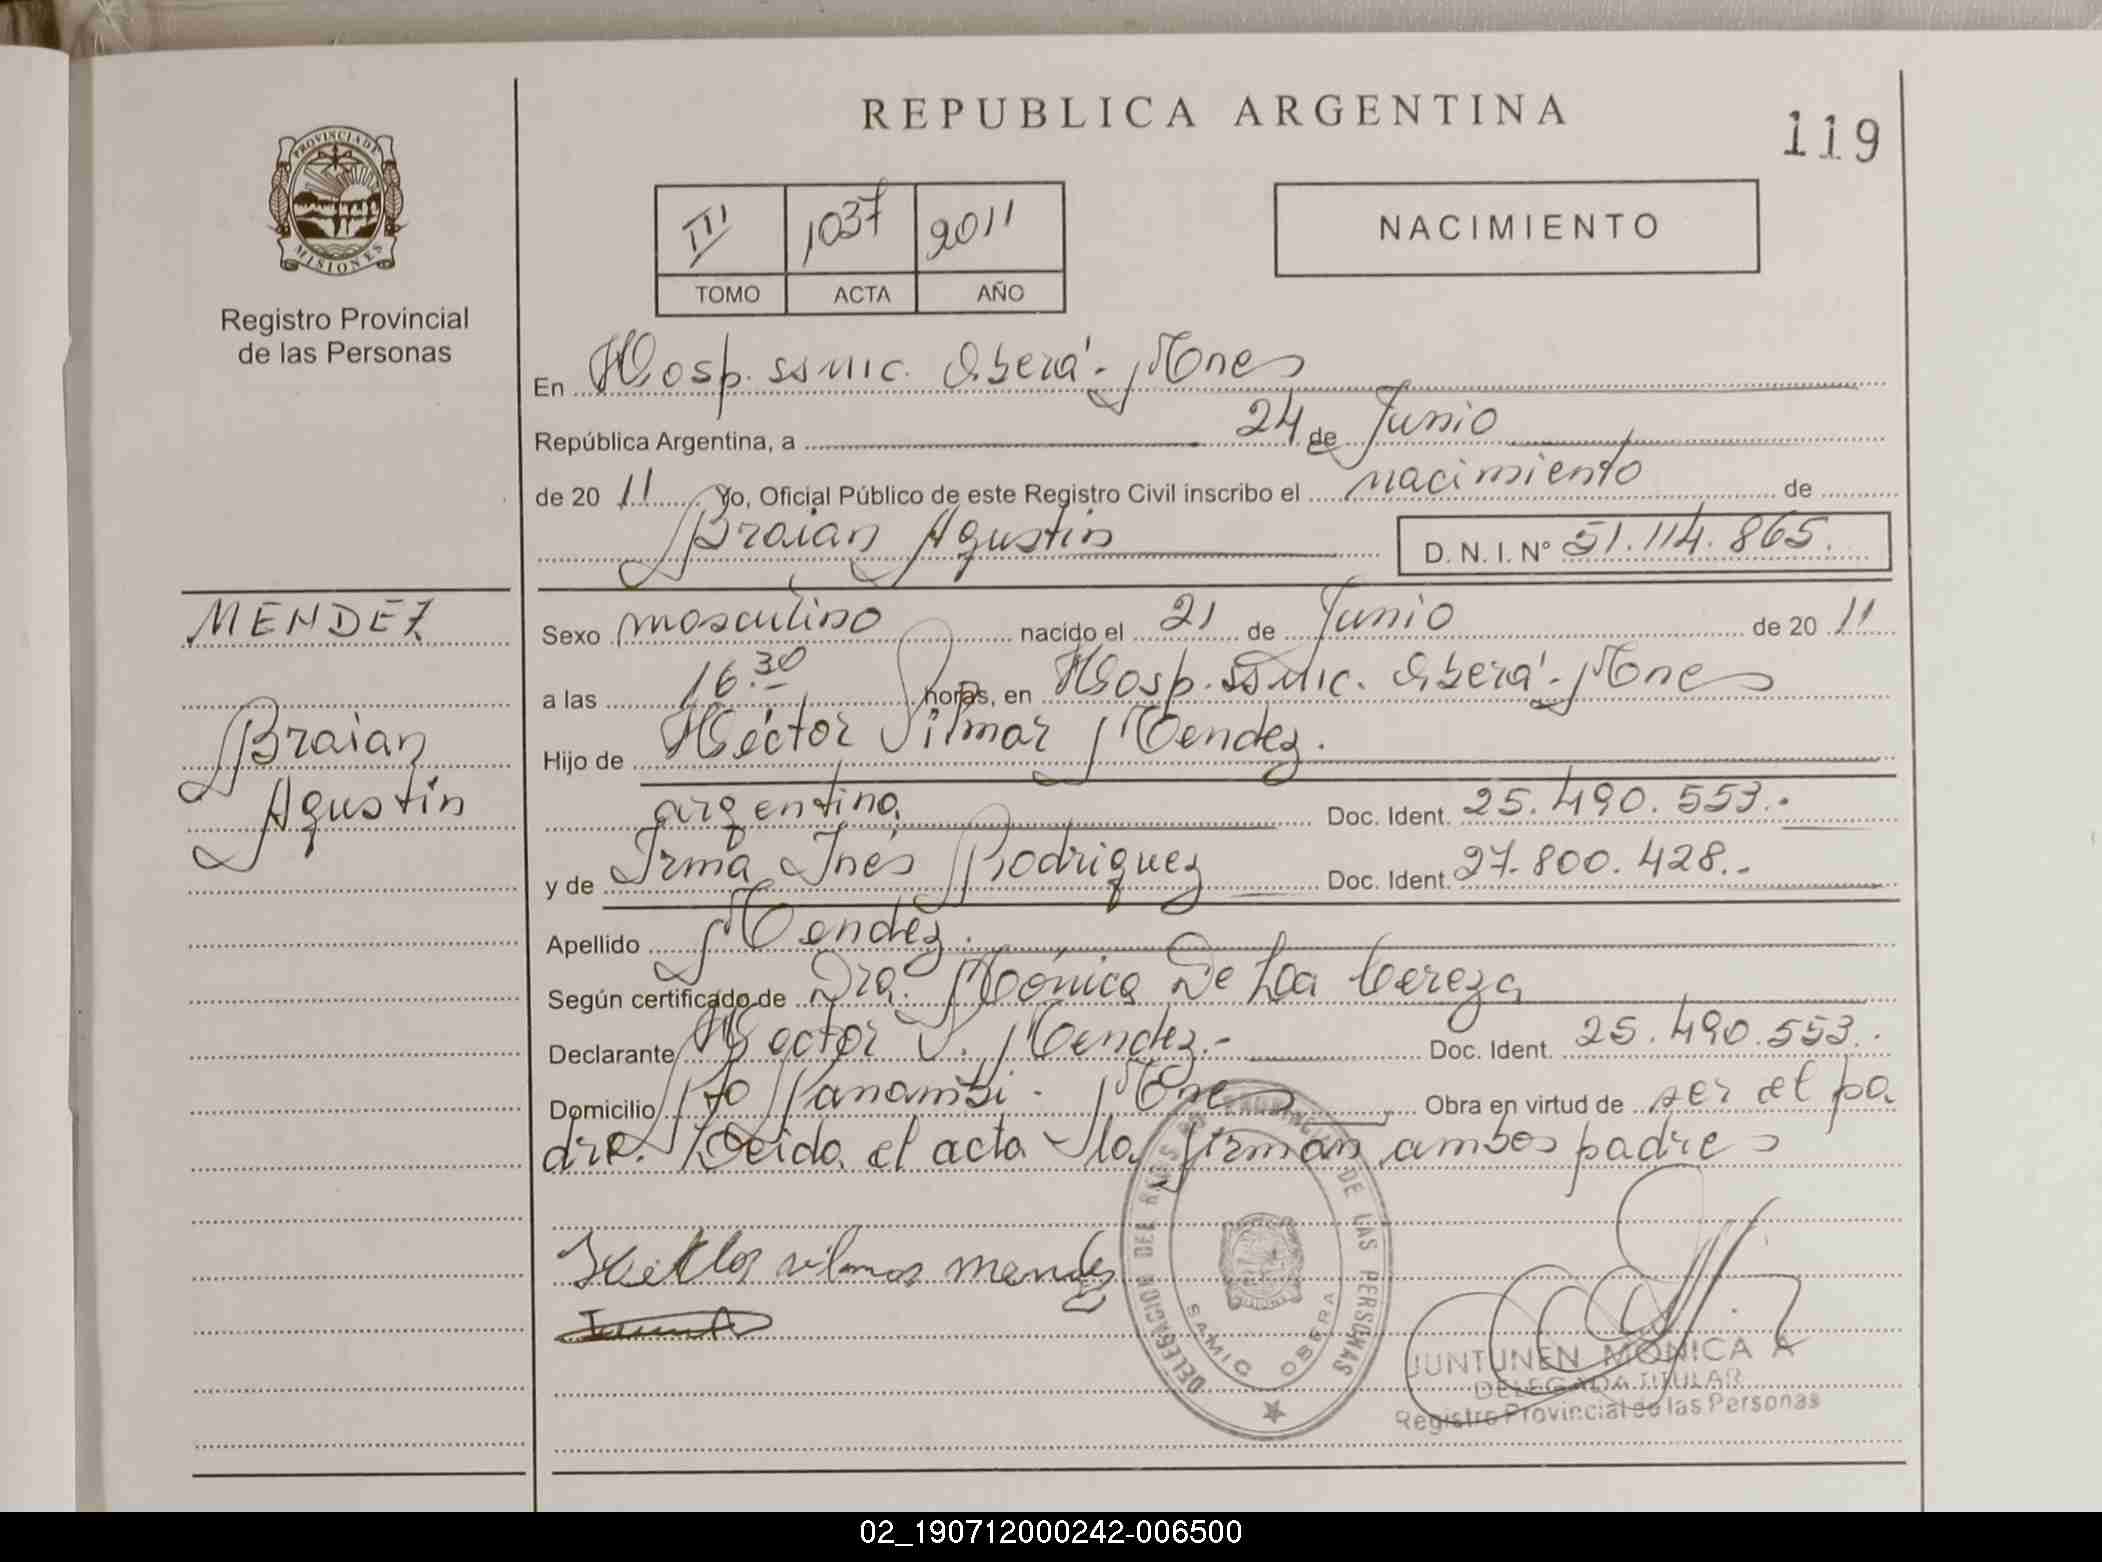 REPUBLICA ARGENTINA
119
PROVINCIA DE
MISIONES
Registro Provincial
de las Personas
III 1037 2011
TOMO ACTA AÑO
NACIMIENTO
En Hosp. SSMIC. Oberá - Mnes
República Argentina, a 24 de Junio
de 2011 Yo, Oficial Público de este Registro Civil inscribo el nacimiento de
Braian Agustin D. N. I. Nº 51.114.865.
MENDEZ
Braian
Agustin
Sexo masculino nacido el 21 de Junio de 2011
a las 16.30 horas, en Hosp. SSMIC. Oberá - Mnes
Hijo de Héctor Vilmar Mendez.
argentino Doc. Ident. 25.490.553.-
y de Irma Inés Rodriguez Doc. Ident. 27.800.428.-
Apellido Mendez.
Según certificado de Dra. Mónica De La Cereza
Declarante Hector V. Mendez.- Doc. Ident. 25.490.553.-
Domicilio Pto Panambi - Mnes Obra en virtud de ser el pa
dre. Leida el acta la firman ambos padres
mendez
DELEGACION DEL REG. PROVINCIAL DE LAS PERSONAS
SAMIC OBERA
JUNTUNEN MONICA A
DELEGADA TITULAR
Registro Provincial de las Personas
02_190712000242-006500